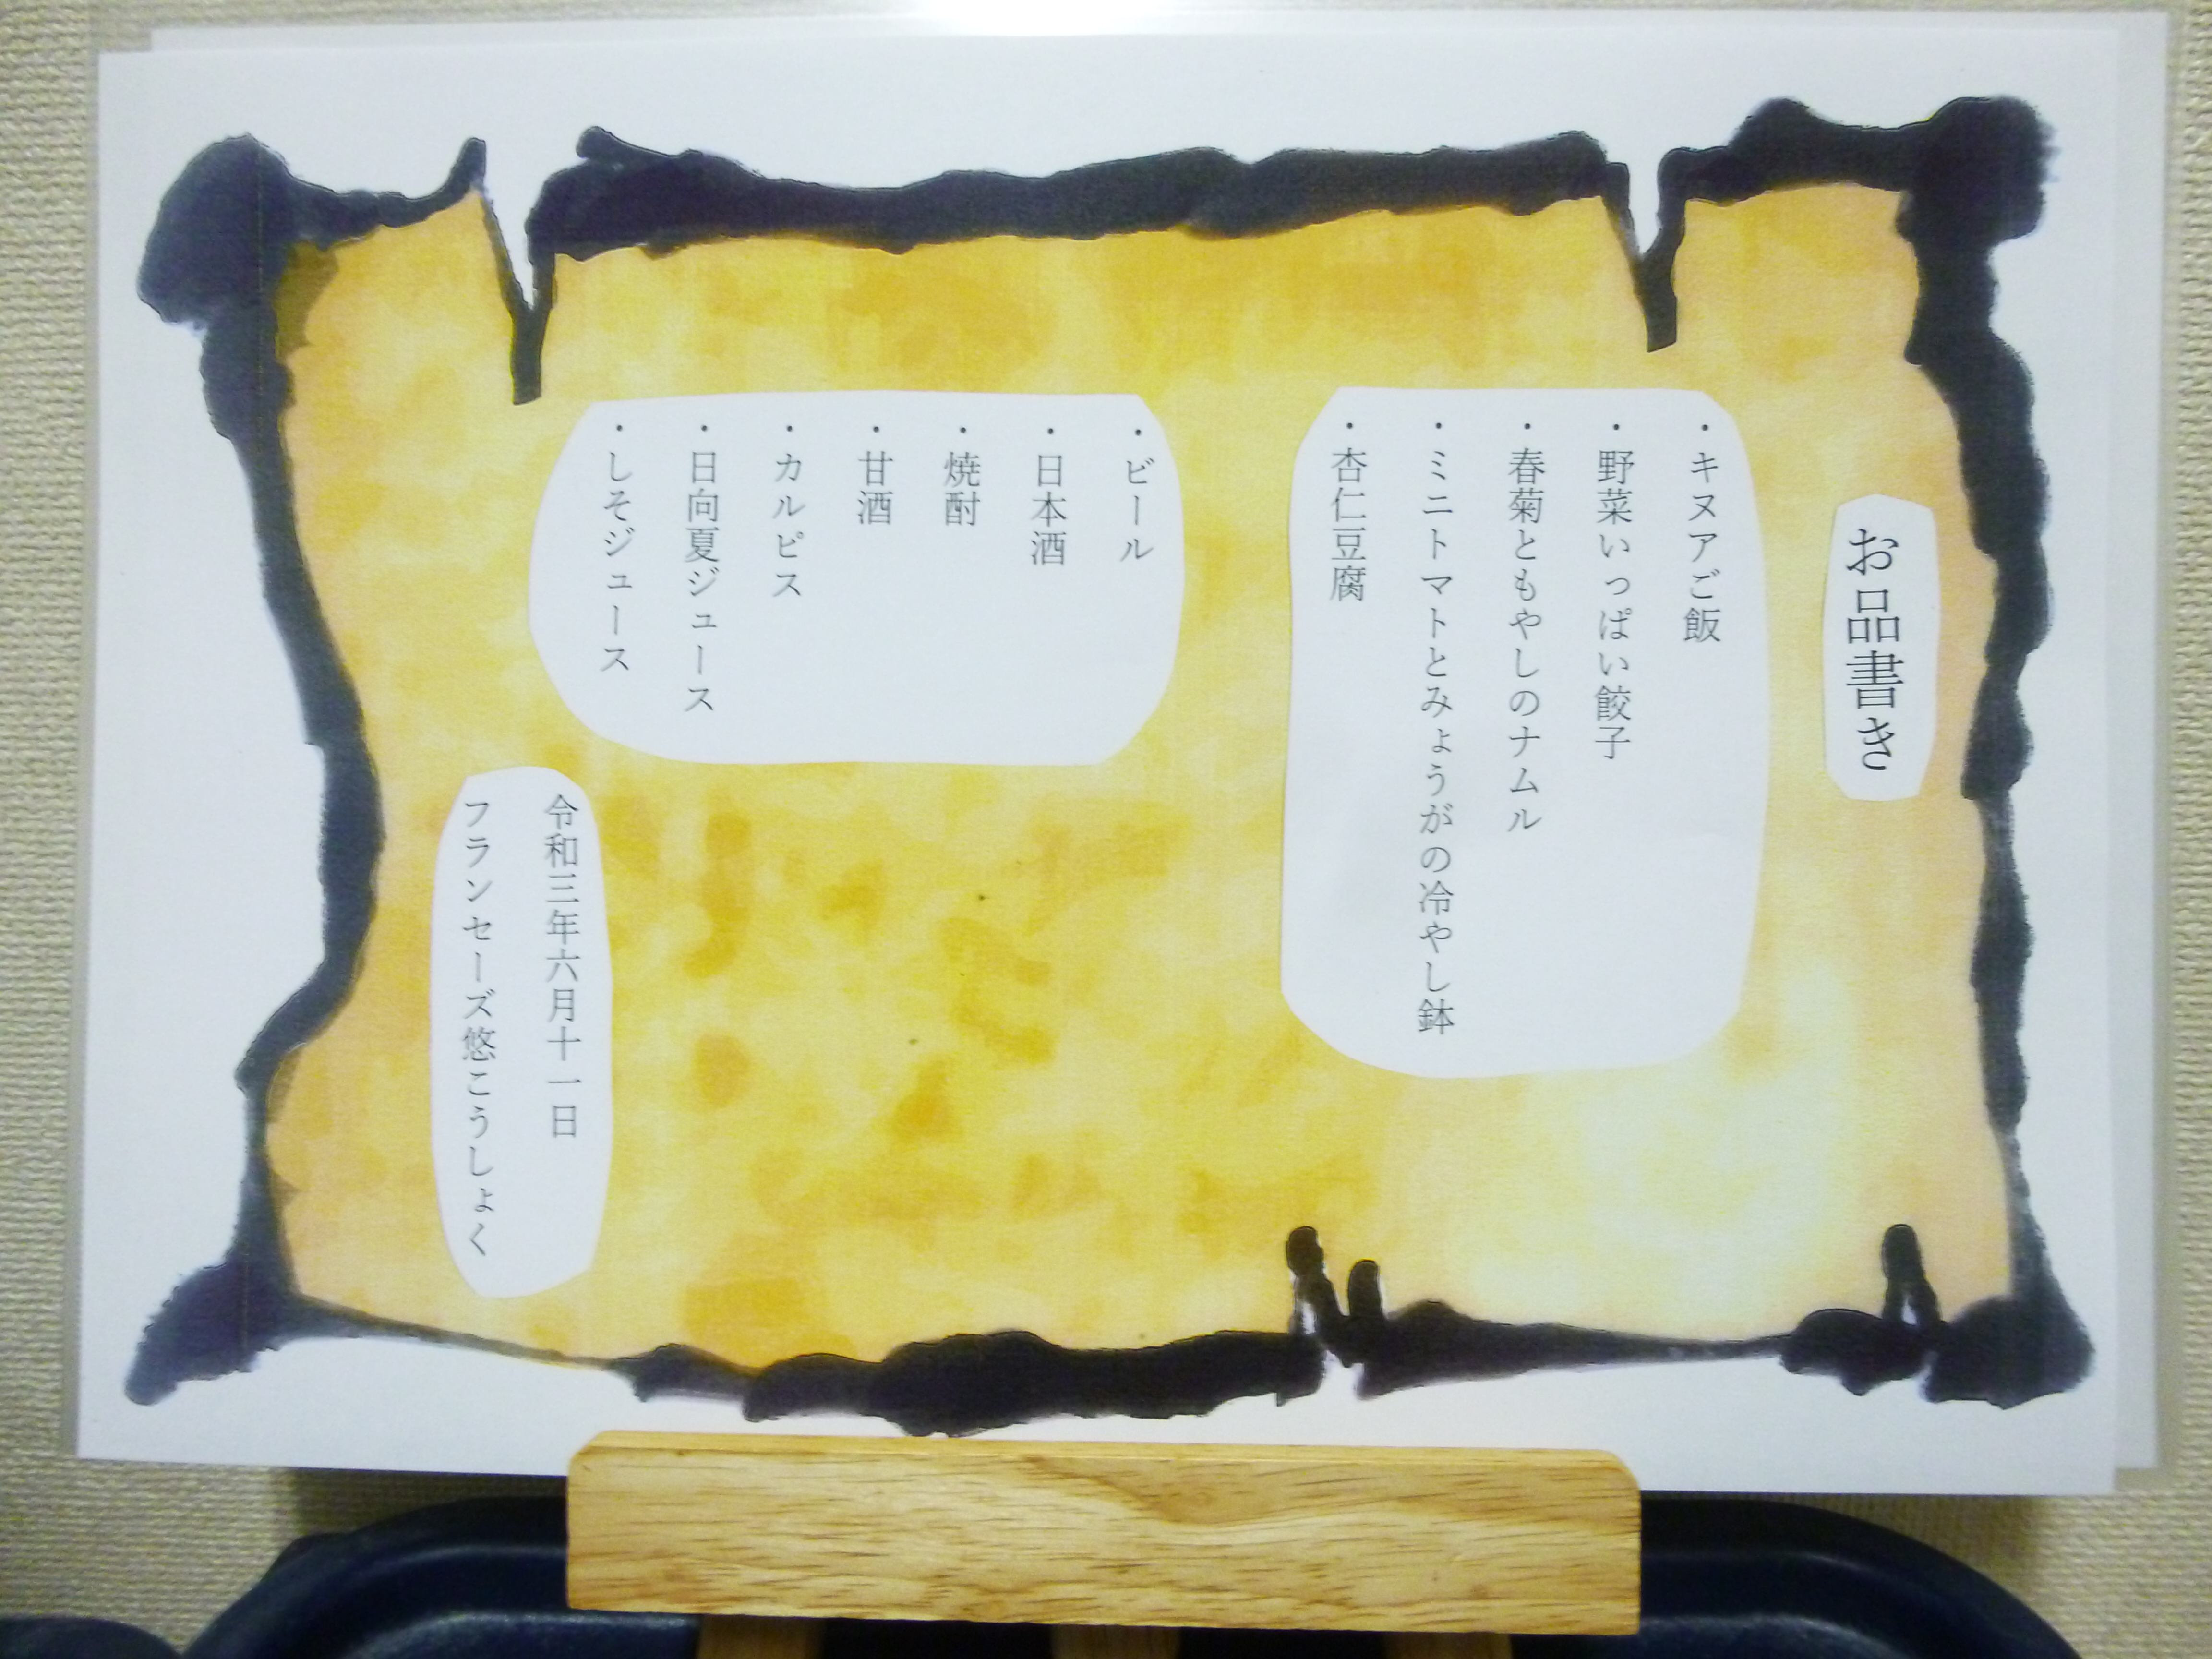 お品書き
・キヌアご飯
・野菜いっぱい餃子
・春菊ともやしのナムル
・ミニトマトとみょうがの冷やし鉢
・杏仁豆腐
・ビール
・日本酒
・焼酎
・甘酒
・カルピス
・日向夏ジュース
・しそジュース
令和三年六月十一日
フランセーズ悠こうしょく